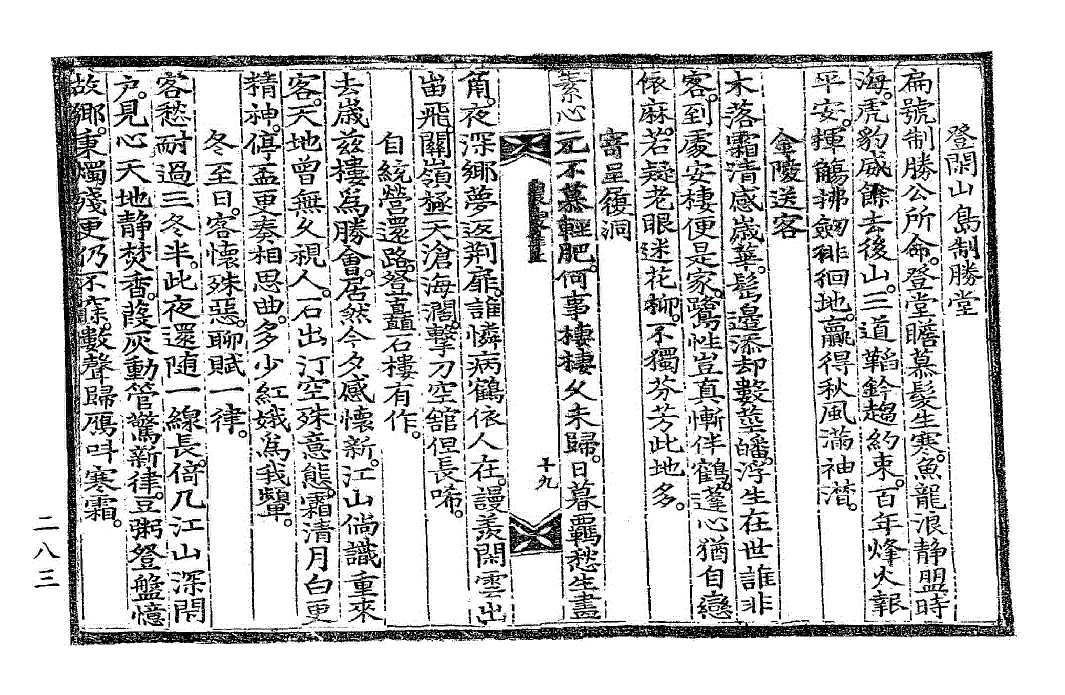 登閑山島制勝堂
扁號制勝公所命。登堂瞻慕髮生寒。魚龍浪静盟時
海。虎豹威餘去後山。三道鞱鈐趨約束。百年烽火報
平安。揮觴拂劒徘徊地。贏得秋風滿袖潸。
金陵送客
木落霜清感歲華。髩邊添却數莖皤。浮生在世誰非
客。到處安棲便是家。鷺性豈真慚伴鶴。蓬心猶自戀
依麻。若疑老眼迷花柳。不獨芬芳此地多。
寄呈復洞
素心元不慕輕肥。何事棲棲久未歸。日暮羈愁生畫
十九
角。夜深鄉夢返荆扉。誰憐病鶴依人在。謾羡閑雲出
峀飛。關嶺極天滄海濶。擊刀空舘但長唏。
自統營還路。登矗石樓有作。
去歲玆樓爲勝會。居然今夕感懷新。江山倘識重來
客。天地曾無久視人。石出汀空殊意態。霜清月白更
精神。停盃更奏相思曲。多少紅娥爲我顰。
冬至日。客懷殊惡。聊賦一律。
客愁耐過三冬半。此夜還随一線長。倚几江山深閉
户。見心天地静焚香。葭灰動管驚新律。豆粥登盤憶
故鄉。秉燭殘更仍不寐。數聲歸鴈叫寒霜。
二八三